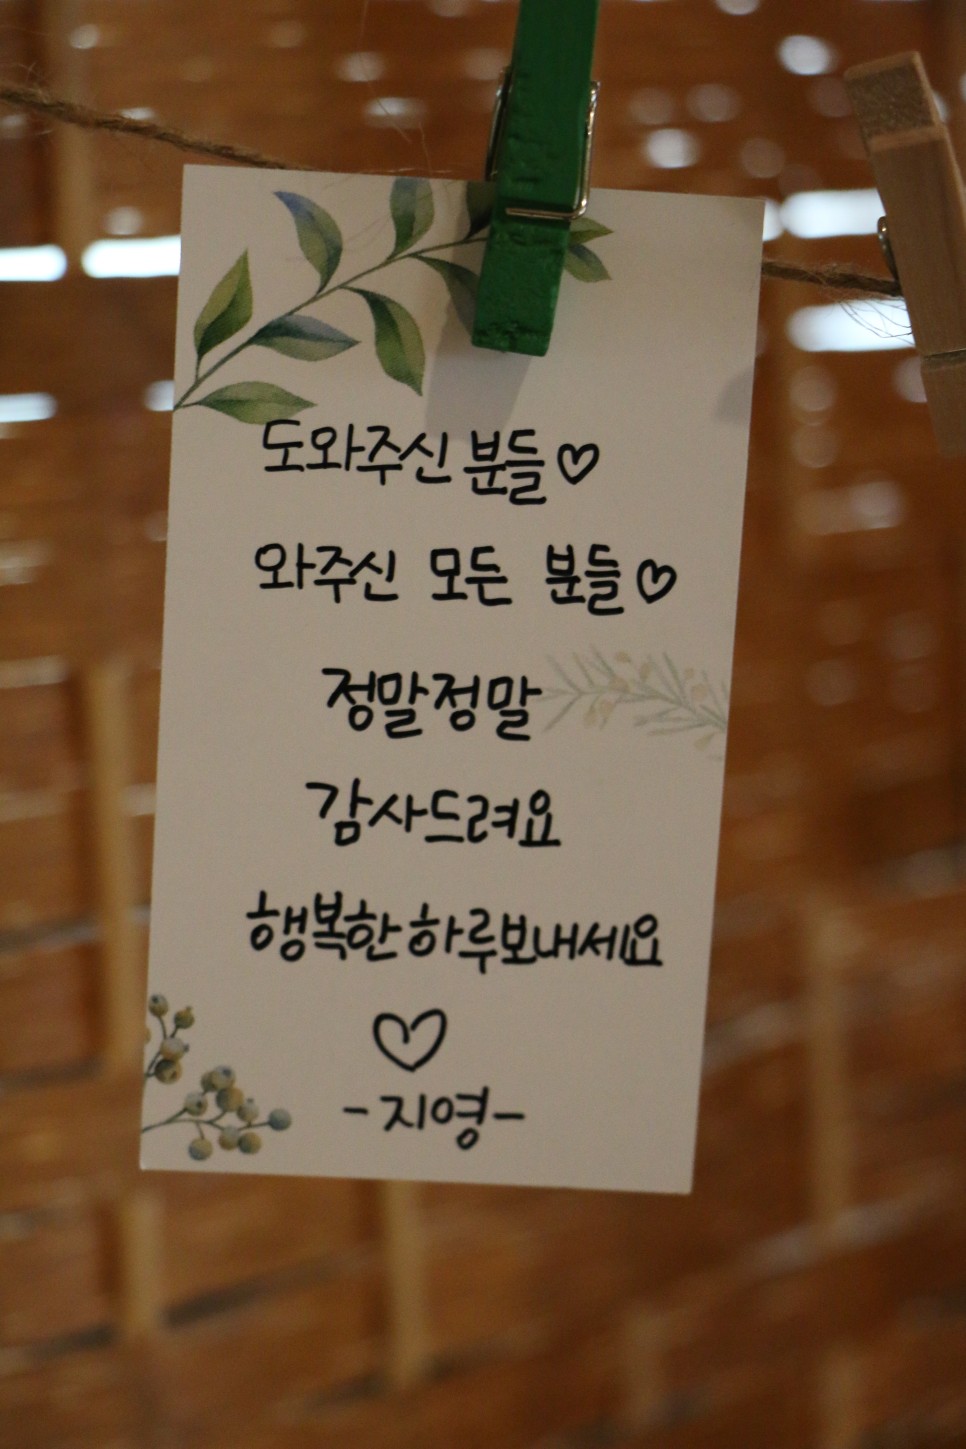 도와주신 분들♡
와주신 모든 분들♡
정말정말
감사드려요
행복한 하루보내세요
♡
-지영-